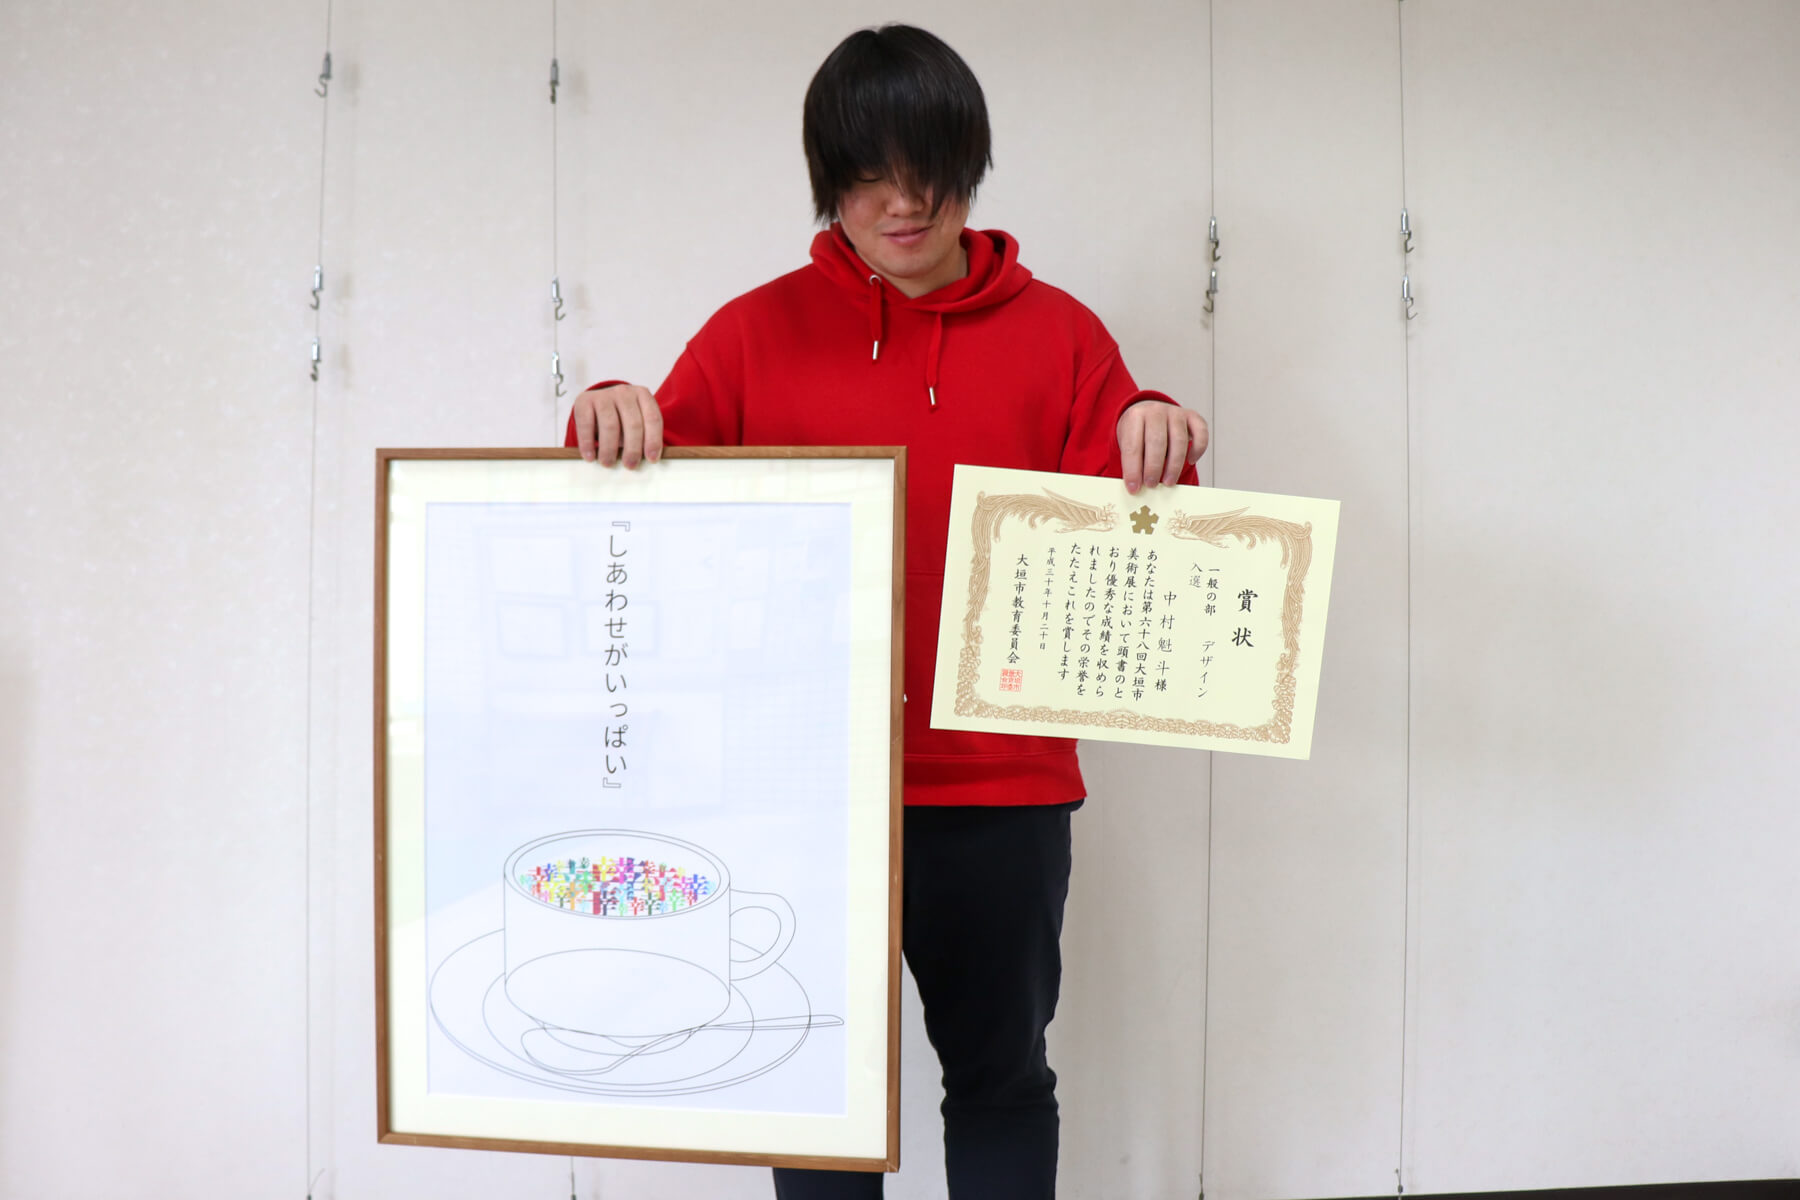 『しあわせがいっぱい』
賞状
一般の部 デザイン
入選
中村魁斗様
あなたは第六十八回大垣市
美術展において頭書のと
おり優秀な成績を収めら
れましたのでその栄誉を
たたえこれを賞します
平成三十年十月二十日
大垣市教育委員会